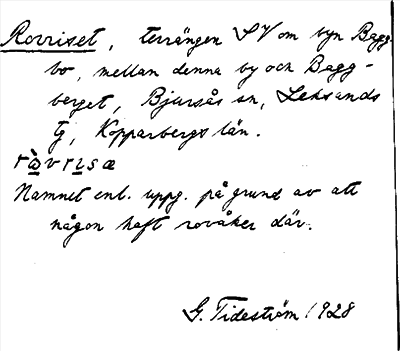 Rovriset, terrängen SV om byn Bagg-
bo, mellan denna by och Bagg-
berget, Bjursås sn, Leksands
tg, Kopparbergs län.
ràvrisæ
Namnet enl. uppg. på grund av att
någon haft rovåker där.
G. Tideström 1928